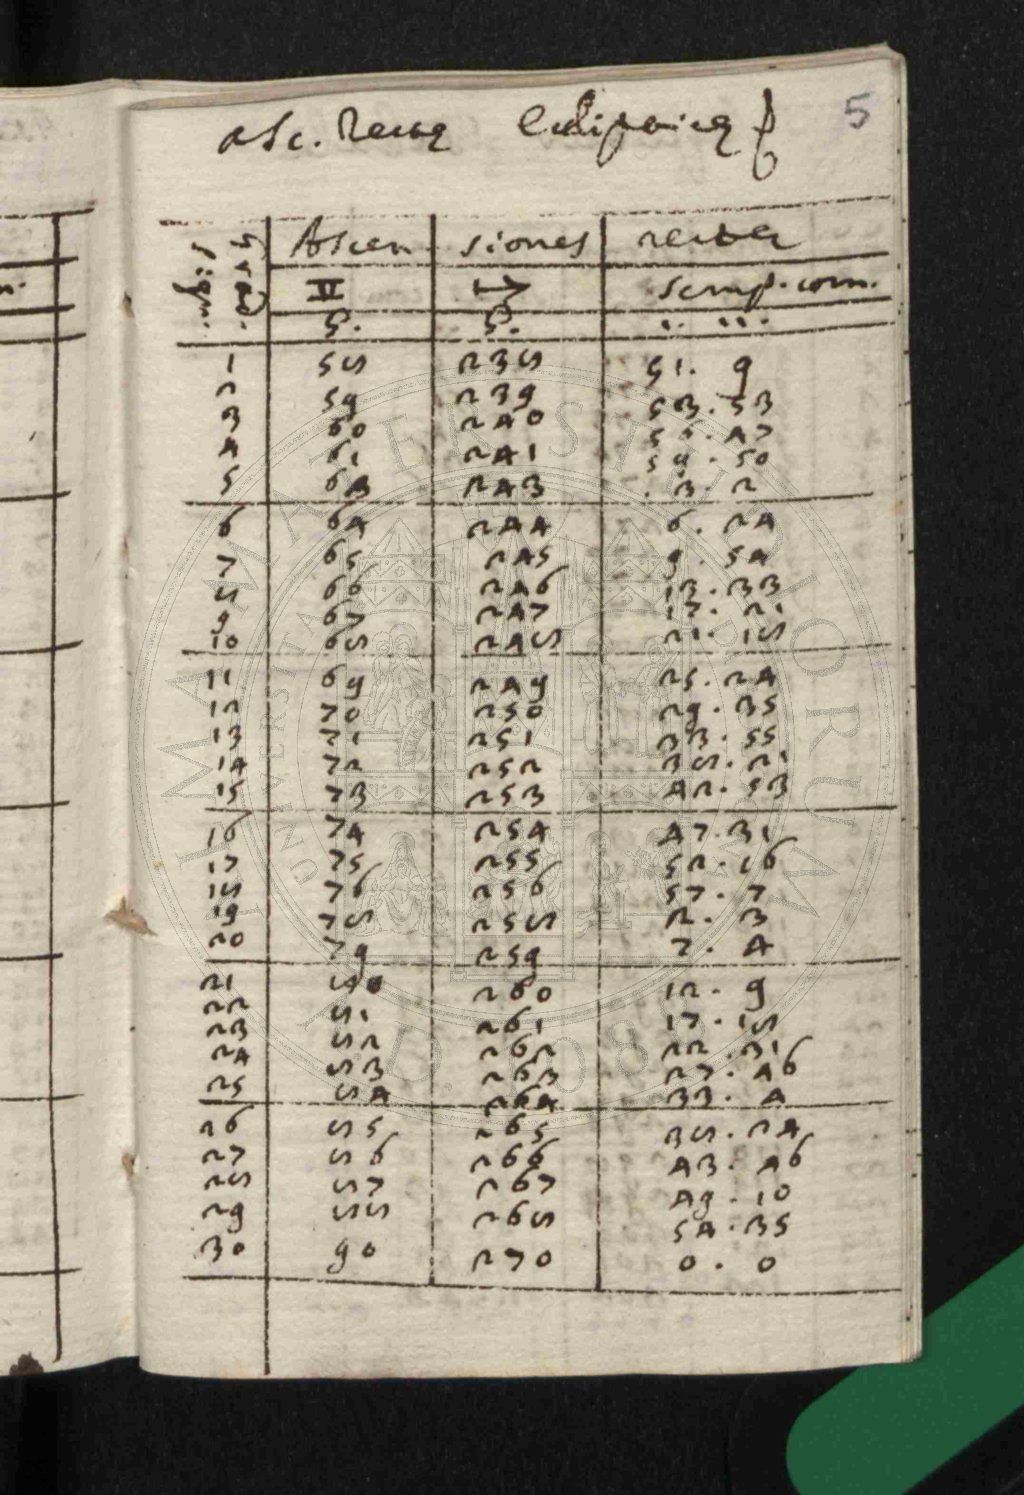 Asc. Rectae Eclipticae 5
Ascen siones rectae
♊ ♐ scrup. com.
g. g. ' . '' .
1 58 238 51. 9
2 59 239 53. 53
3 60 240 56. 47
4 61 241 59. 50
5 63 243 . 3. 2
6 64 244 6. 24
7 65 245 9. 54
8 66 246 13. 33
9 67 247 17. 21
10 68 248 21. 18
11 69 249 25. 24
12 70 250 29. 35
13 71 251 33. 55
14 72 252 38. 21
15 73 253 42. 53
16 74 254 47. 31
17 75 255 52. 16
18 76 256 57. 7
19 78 258 2. 3
20 79 259 7. 4
21 80 260 12. 9
22 81 261 17. 18
23 82 262 22. 31
24 83 263 27. 46
25 84 264 33. 4
26 85 265 38. 24
27 86 266 43. 46
28 87 267 49. 10
29 88 268 54. 35
30 90 270 0. 0